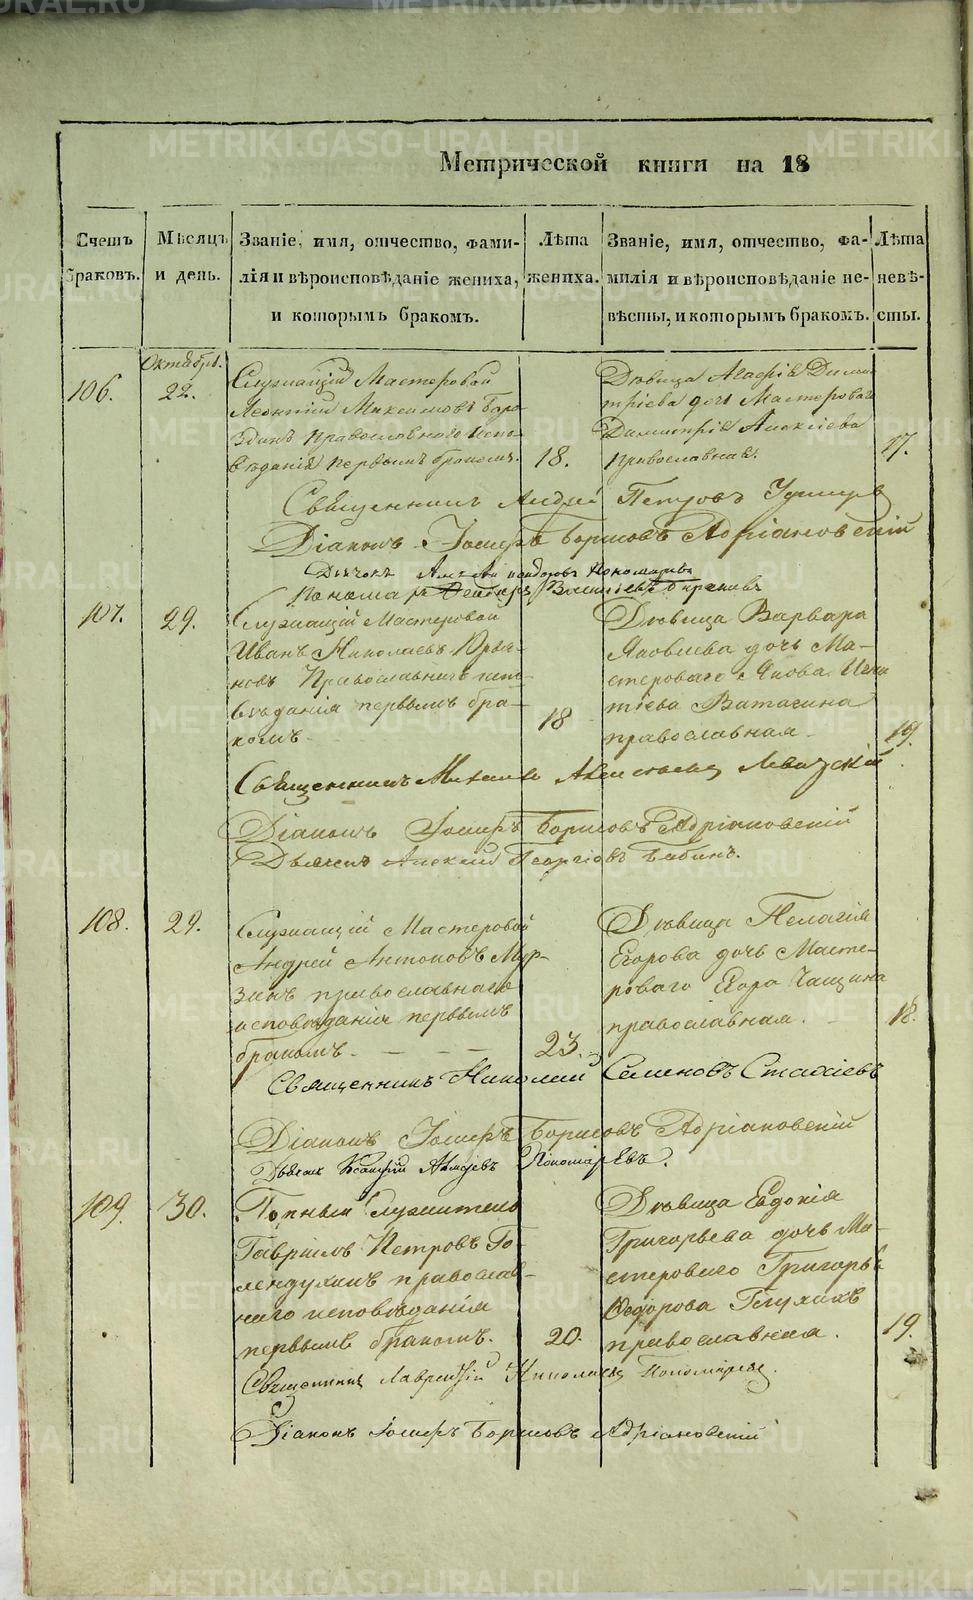 METRIKI.GASO-URAL.RU
Метрической книги на 18
Счетъ браковъ.
Мѣсяцъ и день.
Званіе, имя, отчество, фами-
лія и вѣроисповѣданіе жениха,
и которымъ бракомъ.
Лѣта жениха.
Званіе, имя, отчество, фа-
милія и вѣроисповѣданіе не-
вѣсты, и которымъ бракомъ.
Лѣта невѣ-
сты.
Октября.
106.
22.
Служащій Мастеровой
Леонтій Максимовъ Боро-
здинъ православного испо-
вѣданія первымъ бракомъ.
18.
Дѣвица Агафія Дими-
тріева дочь Мастероваго
Димитрія Алексіева
православная.
17.
Священникъ Андрей Петровъ
Діаконъ Іосифъ Борисовъ Адріановскій
Дьячекъ Пономаревъ
Пономарь Василіевъ
107.
29.
Служащій Мастеровой
Иванъ Николаевъ Юрья-
новъ Православнаго испо-
вѣданія первымъ бра-
комъ
18
Дѣвица Варвара
Яковлева дочь Ма-
стероваго Якова Игна
тіева Ватагина
православная
19.
Священникъ Михаилъ Алексіевъ Левитскій
Діаконъ Іосифъ Борисовъ Адріановскій
Дьячекъ Алексій Георгіовъ Бабинъ.
108.
29.
Служащій Мастеровой
Андрей Антоновъ Мур-
зинъ православнаго
исповѣданія первымъ
бракомъ.
23.
Дѣвица Пелагія
Егорова дочь Масте-
роваго Егора Чащина
православная.
18.
Священникъ Николай Семеновъ Стахіевъ
Діаконъ Іосифъ Борисовъ Адріановскій
Дьячекъ Пономаревъ.
109.
30.
Горный Служитель
Гавріилъ Петровъ Го-
лендухинъ православ-
наго исповѣданія
первымъ бракомъ.
20.
Дѣвица Евдокія
Григорьева дочь Ма-
стероваго Григорья
Ѳедорова Глухихъ
православная.
19.
Священникъ Лаврентій Николаевъ Пономаревъ.
Діаконъ Іосифъ Борисовъ Адріановскій